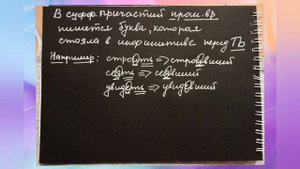 В суфф. причастий прош. вр
пишется буква, которая
стояла в инфинитиве перед ТЬ
Например: строить => строивший
сеять => сеявший
увидеть => увидевший